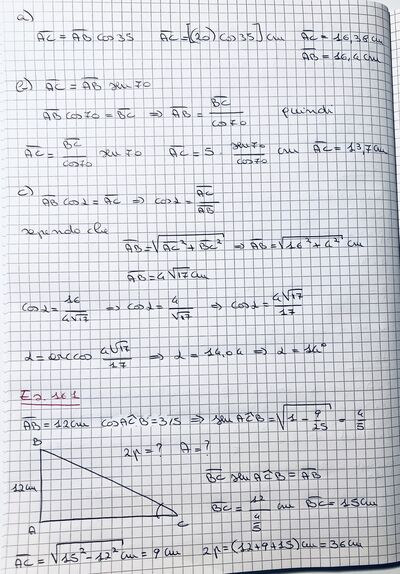 a)
AC = AB cos 35 AC = [(20) cos 35] cm AC = 16,38 cm
AB = 16,4 cm
b) AC = AB sen 70
AB cos 70 = BC ⇒ AB = BC/cos 70 quindi
AC = BC/cos 70 sen 70 AC = 5 · sen 70/cos 70 cm AC = 13,7 cm
c) AB cos α = AC ⇒ cos α = AC/AB
sapendo che
AB = √(AC² + BC²) ⇒ AB = √(16² + 4²) cm
AB = 4√17 cm
cos α = 16/4√17 ⇒ cos α = 4/√17 ⇒ cos α = 4√17/17
α = arccos 4√17/17 ⇒ α = 14,04 ⇒ α = 14°
Es. 161
AB = 12 cm cos AĈB = 3/5 ⇒ sen AĈB = √(1 - 9/25) = 4/5
B
2p = ? A = ?
BC sen AĈB = AB
12 cm
BC = 12/(4/5) cm BC = 15 cm
A C
AC = √(15² - 12²) cm = 9 cm 2p = (12+9+15) cm = 36 cm